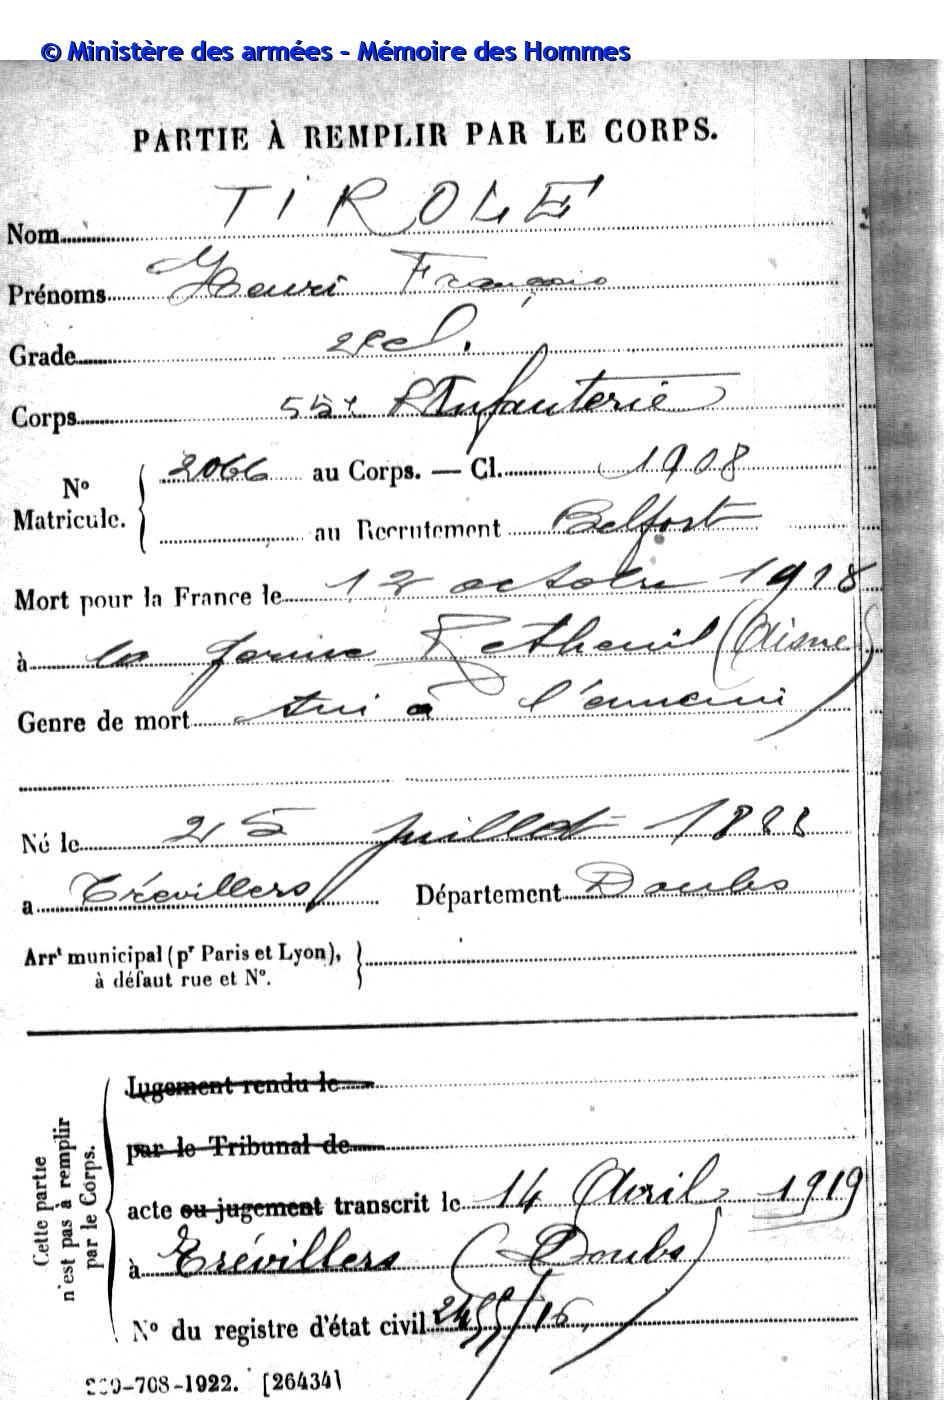 © Ministère des armées - Mémoire des Hommes
PARTIE À REMPLIR PAR LE CORPS.
Nom TIROLE
Prénoms Henri François
Grade 2e cl.
Corps 55e R Infanterie
No Matricule. 2066 au Corps. — Cl. 1908
au Recrutement Belfort
Mort pour la France le 12 octobre 1918
à la ferme Retheuil (Aisne)
Genre de mort tué à l'ennemi
Né le 25 juillet 1888
a Trévillers Département Doubs
Arrt municipal (pr Paris et Lyon),
à défaut rue et No.
Cette partie n'est pas à remplir par le Corps.
Jugement rendu le
par le Tribunal de
acte ou jugement transcrit le 14 Avril 1919
à Trévillers (Doubs)
No du registre d'état civil
-708-1922. [26434]